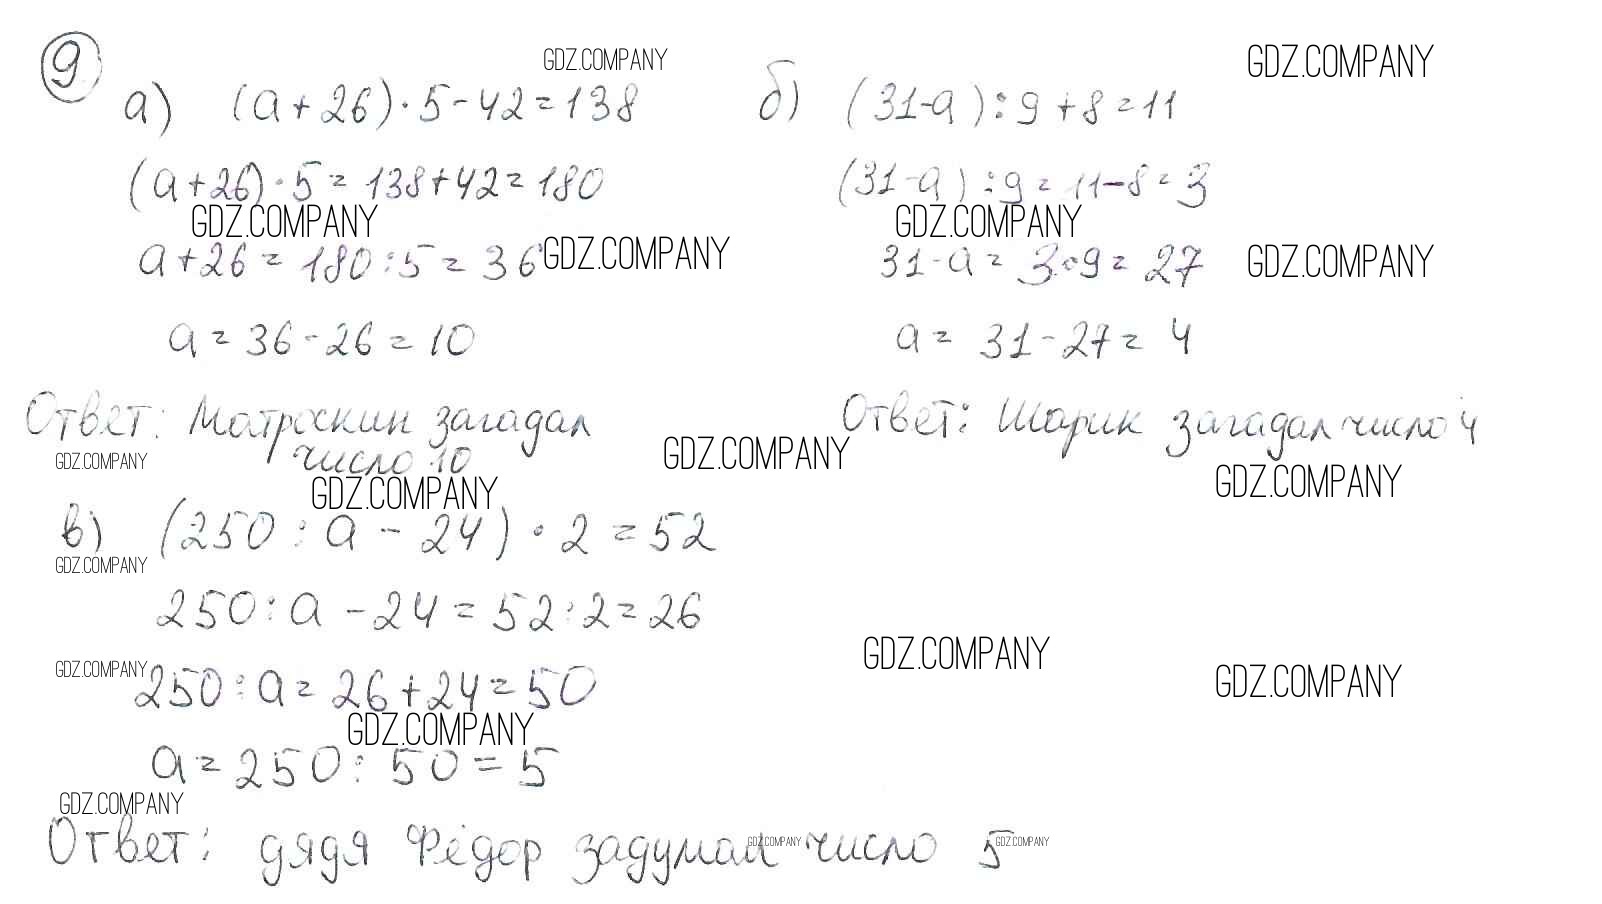 9
GDZ.COMPANY
GDZ.COMPANY
а) (a+26)·5-42=138
б) (31-a):9+8=11
(a+26)·5=138+42=180
(31-a):9=11-8=3
GDZ.COMPANY
GDZ.COMPANY
a+26=180:5=36
GDZ.COMPANY
31-a=3·9=27
GDZ.COMPANY
a=36-26=10
a=31-27=4
Ответ: Матроскин загадал
число 10
Ответ: Шарик загадал число 4
GDZ.COMPANY
GDZ.COMPANY
GDZ.COMPANY
GDZ.COMPANY
в) (250:a-24)·2=52
GDZ.COMPANY
250:a-24=52:2=26
GDZ.COMPANY
GDZ.COMPANY
GDZ.COMPANY
250:a=26+24=50
GDZ.COMPANY
a=250:50=5
GDZ.COMPANY
Ответ: дядя Фёдор задумал число 5
GDZ.COMPANY
GDZ.COMPANY